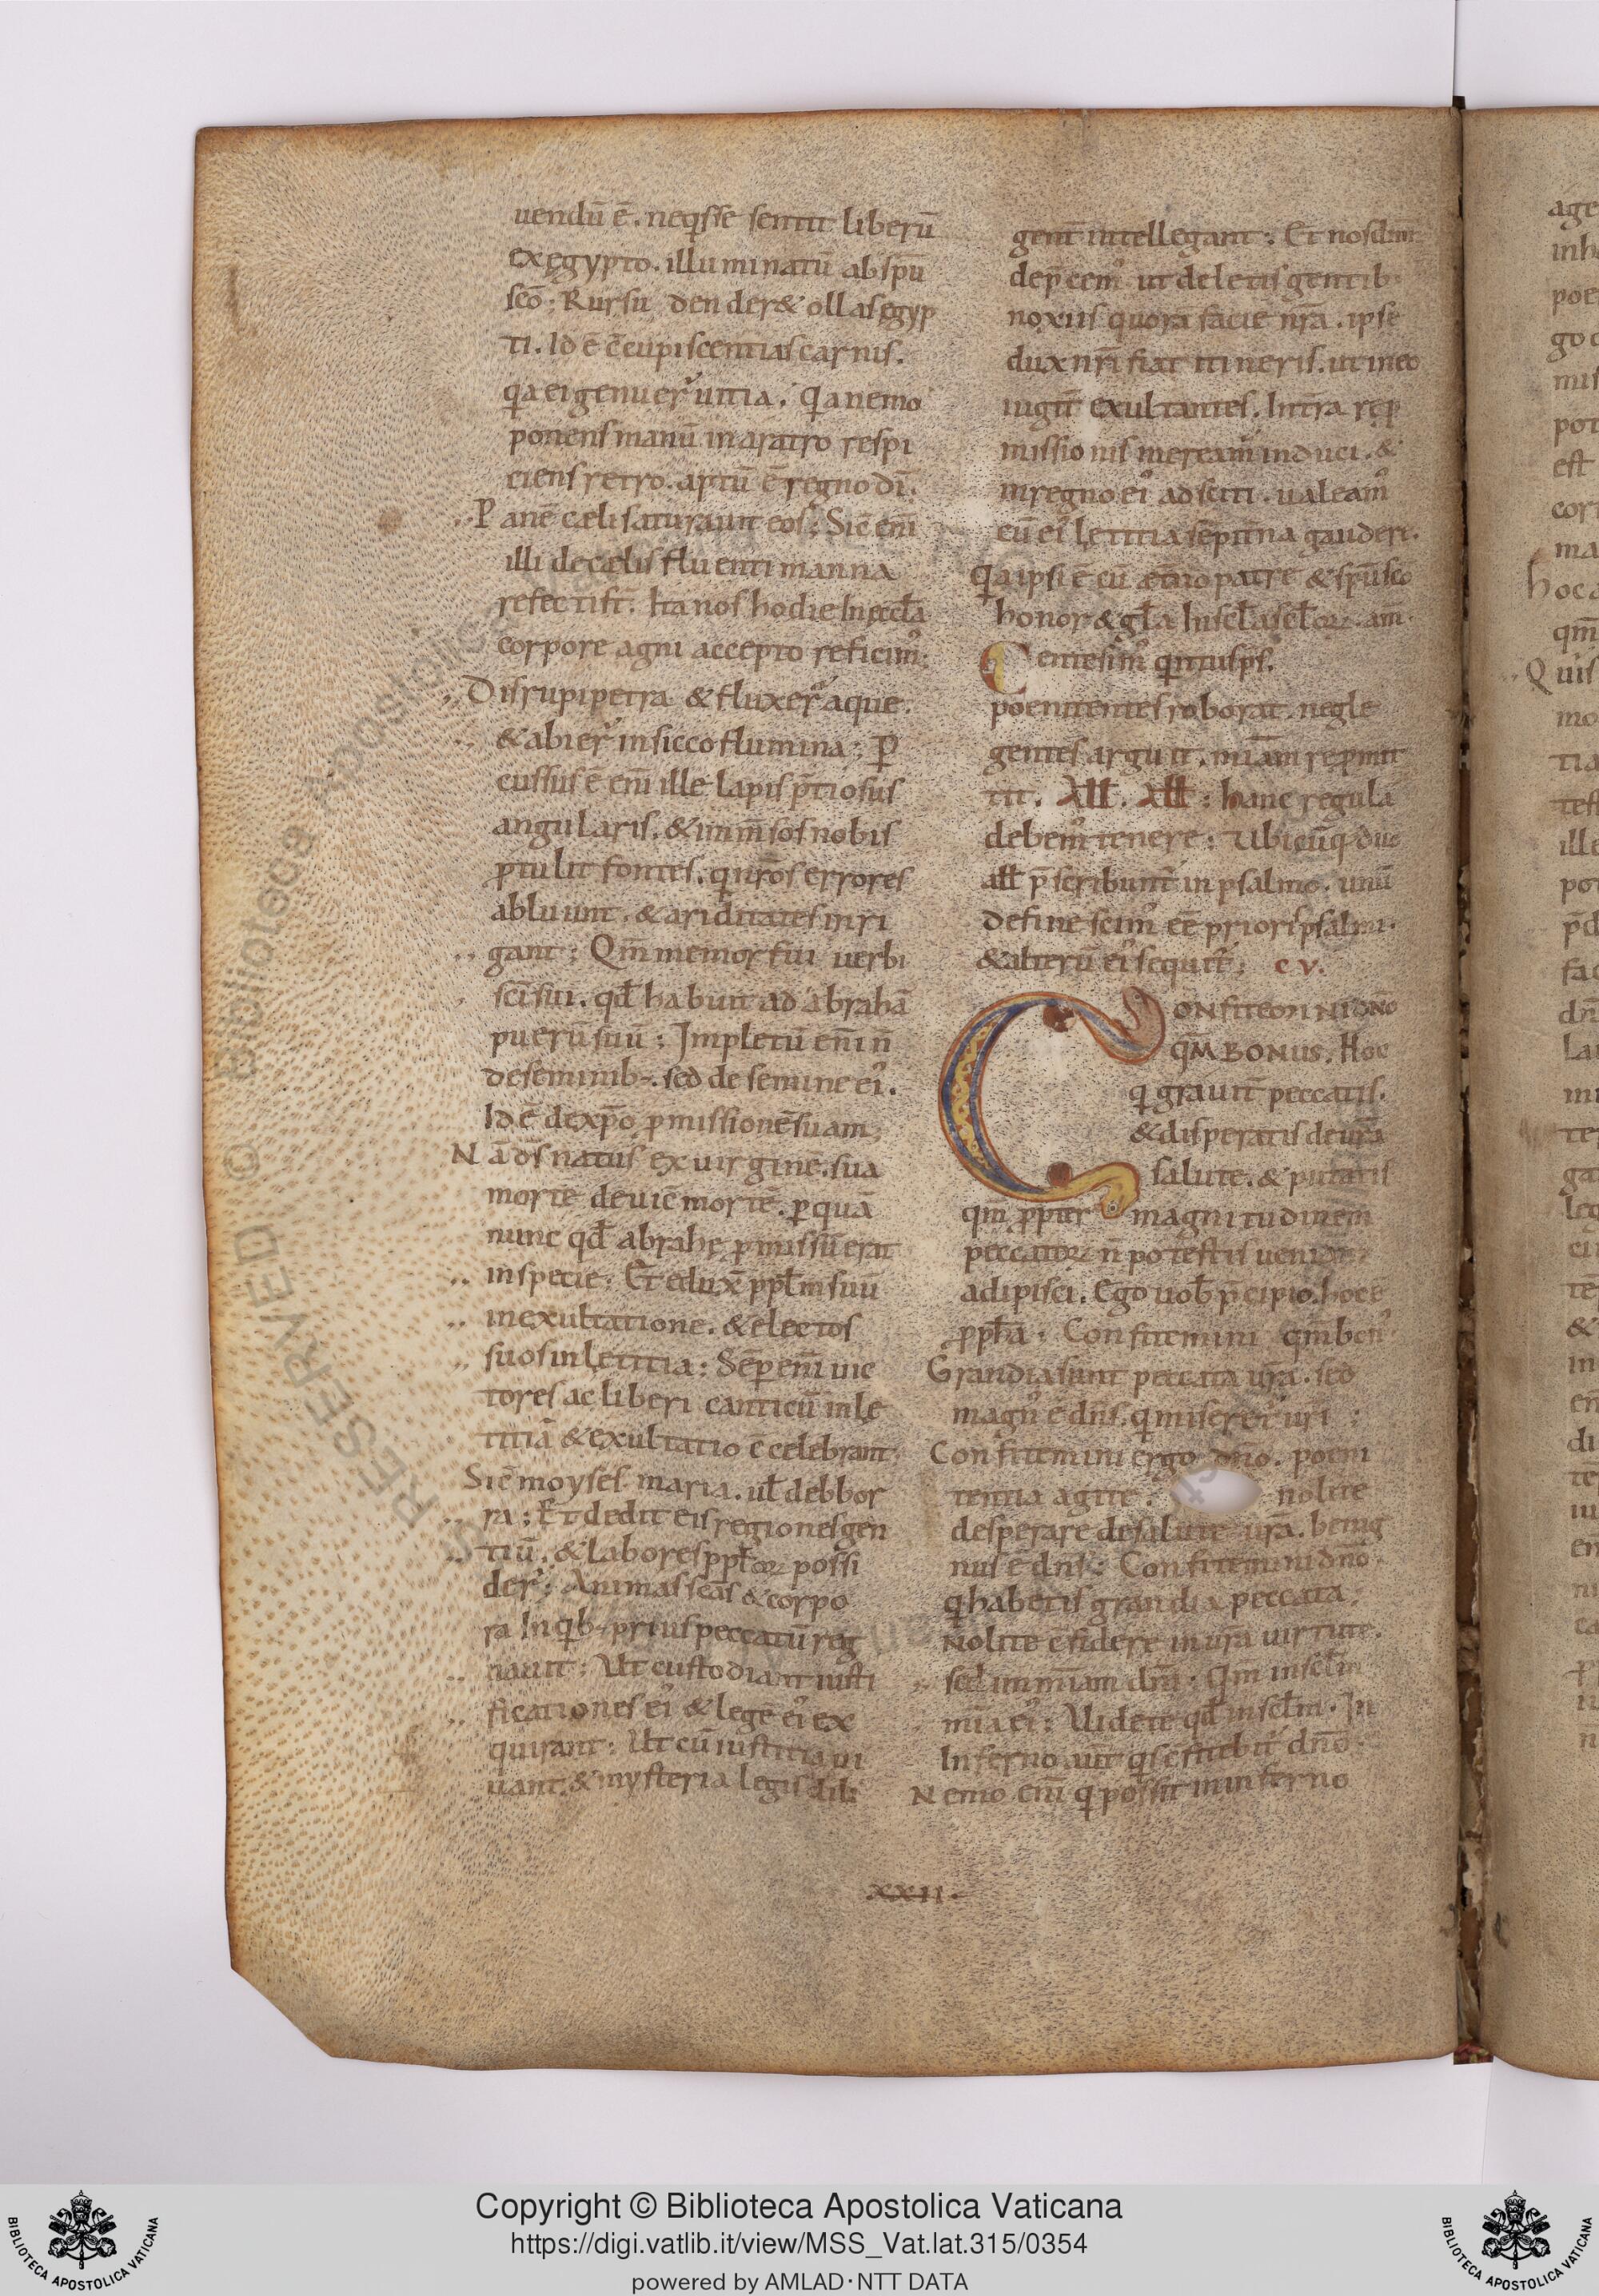 uendū ē. neq; se sentit liberū
ex ęgypto. illuminatū ab spū
scō; Rursū den der& ollas ęgyp
ti. Id ē c̄cupiscentias carnis.
qa ei genuer̄ uitia. Qa nemo
ponens manū in aratro respi
ciens retro. aptū ē regno dī.
Panē cæli saturauit eos; Sic enī
illi de cælis fluenti manna
refecti st̄. Ita nos hodie In eccl̄a
corpore agni accepto reficim᾿;
Disrupi petra & fluxer̄ aque.
& abier̄ in sicco flumina; P
cussus ē enī ille lapis p̄tiosus
angularis. & imm̄sos nobis
ptulit fontes. q nr̄os errores
abluunt. & ariditates inri
gant; Qm̄ memor fuit uerbi
scī sui. qd̄ habuit ad abrahā
puerū suū; Impletū enī n̄
de seminib;. sed de semine ei᾿.
Id ē de xp̄o pmissionē suam;
Nā d̄s natus ex uirgine. sua
morte deuic̄ mortē. p quā
nunc qd̄ abrahę pmissū erat
in specie; Et edux̄ ppl̄m suū
in exultatione. & electos
suos in lętitia; Sēp enī uic
tores ac liberi canticū in lę
titiā & exultatio ē celebrant;
Sic̄ moyses. maria. ul̄ debbor
ra; Et dedit eis regiones gen
tiū. & labores ppl̄oꝝ possi
der̄; Animas sc̄as & corpo
ra In qb; prius peccatū reg
nauit; Ut custodiant iusti
ficationes ei᾿ & legē ei᾿ ex
quirant; Ut cū iustitia ui
uant. & mysteria legis dili
gent̄ intellegant; Et nos dn̄m
dep̄cem᾿ ut deletis gentib;
noxiis quorā facie nr̄a. ipse
dux nr̄i fiat itineris. ut in eo
iugit̄ exultantes. Intra rep
missionis mereamur induci. &
in regno ei᾿ adsciti. ualeam᾿
cū ei᾿ lętitia sēpit̄na gauderi.
Qa ipsi ē cū æt̄no patre & spū sco
honor & gl̄a In scl̄a scl̄oꝝ. am̄.
Centesim᾿ qntus ps̄.
poenitentes roborat. negle
gentes arguit. miam̄ repmit
tit. All̄. All̄: hanc regulā
debem᾿ tenere; Ubicūq; due
all̄ p̄scribunt̄ in psalmo. unū
de fine scim᾿ eē prioris psalmi.
& alterū ei᾿ sequit̄; cv.
CONFITEMINI DNO
QM BONUS. Hoc
q grauit̄ peccatis.
& disperatis de ur̄a
salute. & putatis
qm ppter magnitudinem
peccatoꝝ n̄ potestis ueniā
adipisci. Ego uob̄ p̄cipio. hoc ē
pph̄a; Confitemini qm̄ bon᾿
Grandia sunt peccata ur̄a. sed
magn᾿ ē dn̄s. q miseret᾿ uri;
Confitemini ergo dn̄o. poeni
tentia agite. nolite
desperare de salute ur̄a. benig
nus ē dn̄s; Confitemini dn̄o
q habetis grandia peccata;
Nolite c̄fidere in ur̄a uirtute.
sed in miam dn̄i; Qm̄ in scl̄m
mīa ei᾿; Uidete qd̄ in scl̄m. In
Inferno aut̄ qs c̄fitebit̄ dn̄o.
Nemo enī q possit in inferno
.xxii.
age
inh
poe
go
mis
pot
est
cor
ma
hoc
qm̄
Quis
mo
tia
test
ille
pot
Copyright © Biblioteca Apostolica Vaticana
https://digi.vatlib.it/view/MSS_Vat.lat.315/0354
powered by AMLAD·NTT DATA
BIBLIOTECA APOSTOLICA VATICANA
BIBLIOTECA APOSTOLICA VATICANA